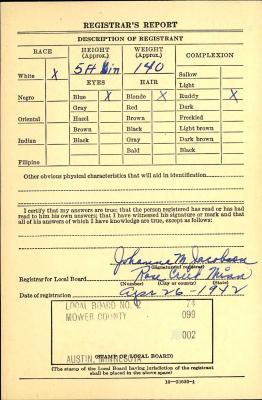 REGISTRAR'S REPORT
DESCRIPTION OF REGISTRANT
RACE HEIGHT (Approx.) WEIGHT (Approx.) COMPLEXION
White X 5 ft 140 Sallow
EYES HAIR Light
Negro Blue X Blonde X Ruddy X
Gray Red Dark
Oriental Hazel Brown Freckled
Brown Black Light brown
Indian Black Gray Dark brown
Bald Black
Filipino
Other obvious physical characteristics that will aid in identification
I certify that my answers are true; that the person registered has read or has had
read to him his own answers; that I have witnessed his signature or mark and that
all of his answers of which I have knowledge are true, except as follows:
Johanne M. Jacobson
(Signature of registrar)
Registrar for Local Board Rose Creek Minn
(Number) (City or county) (State)
Date of registration Apr 26 - 1942
LOCAL BOARD NO. 2 74
MOWER COUNTY 099
002
AUSTIN, MINNESOTA
(STAMP OF LOCAL BOARD)
(The stamp of the Local Board having jurisdiction of the registrant
shall be placed in the above space)
16—21630-1